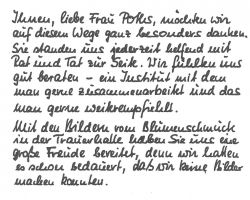 Ihnen, liebe Frau Poths, möchten wir
auf diesem Wege ganz besonders danken.
Sie standen uns jederzeit helfend mit
Rat und Tat zur Seite. Wir fühlten uns
gut beraten – ein Institut mit dem
man gerne zusammenarbeitet und das
man gerne weiterempfiehlt.
Mit den Bildern vom Blumenschmuck
in der Trauerhalle haben Sie uns eine
große Freude bereitet, denn wir hatten
es schon bedauert, daß wir keine Bilder
machen konnten.